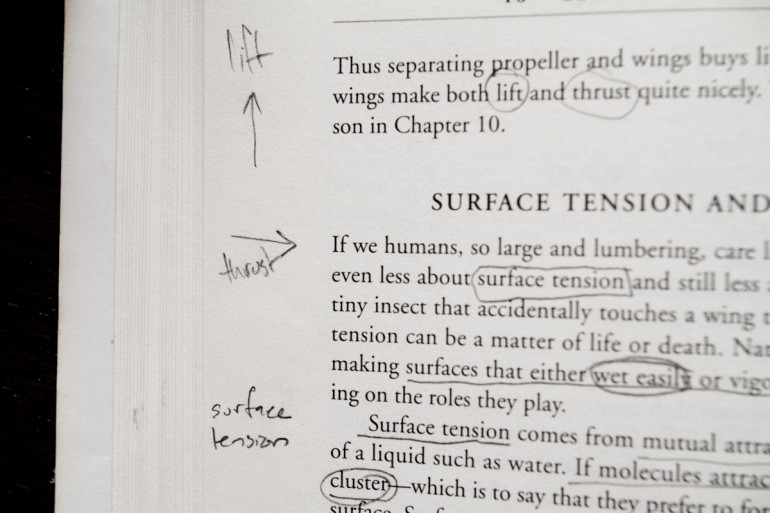 lift
Thus separating propeller and wings buys li
wings make both lift and thrust quite nicely.
son in Chapter 10.
SURFACE TENSION AND
thrust
If we humans, so large and lumbering, care l
even less about surface tension and still less
tiny insect that accidentally touches a wing t
tension can be a matter of life or death. Nat
making surfaces that either wet easily or vigo
ing on the roles they play.
surface
tension
Surface tension comes from mutual attra
of a liquid such as water. If molecules attrac
cluster—which is to say that they prefer to for
surface. Surf